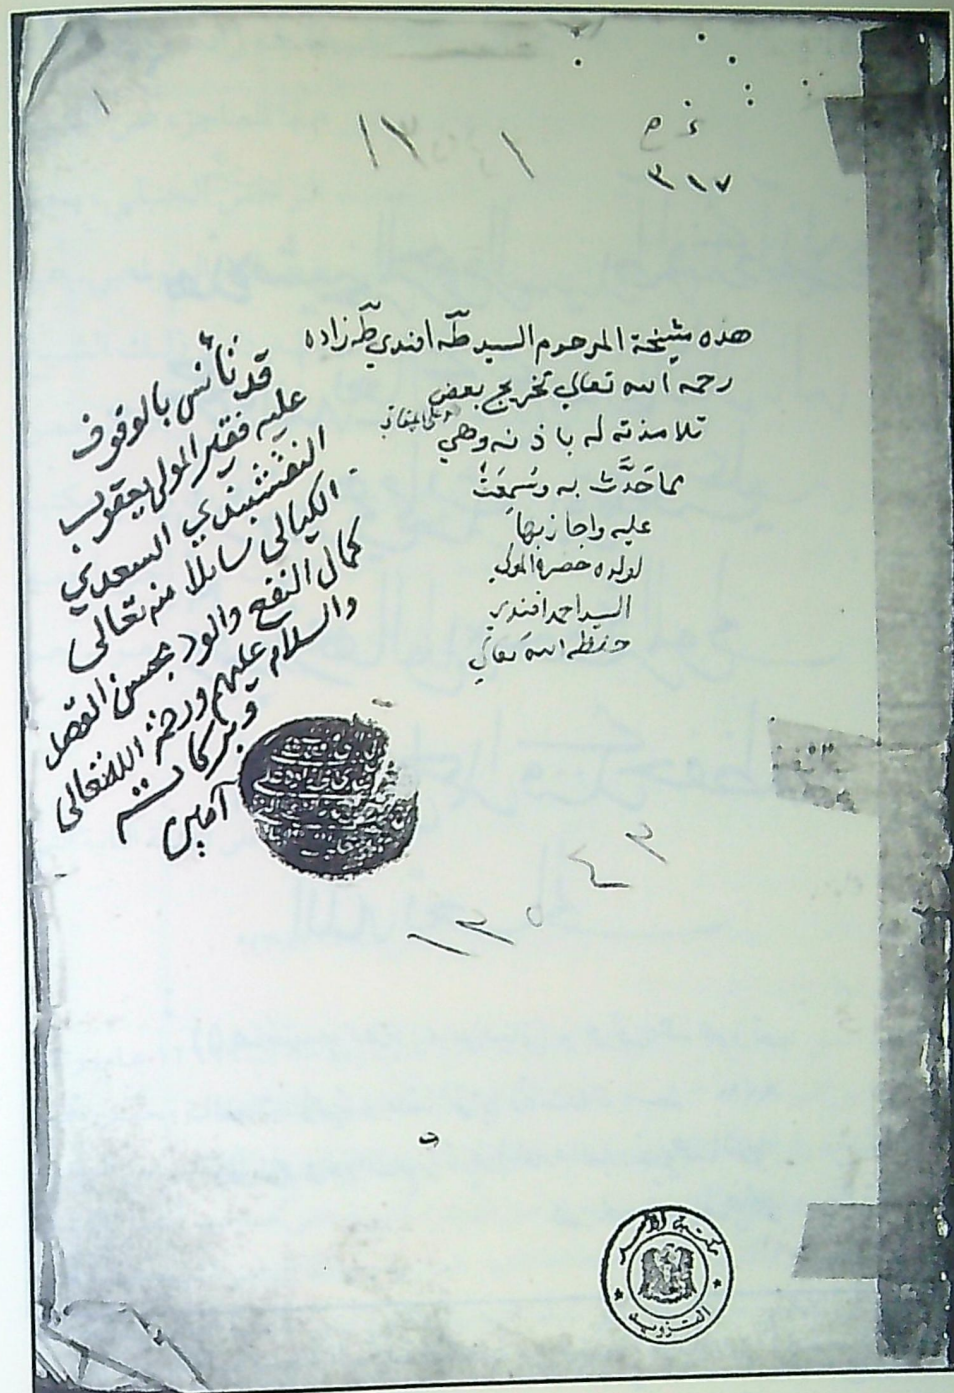 ٣١٧
هذه مشيخة المرحوم السيد طه افندي طه زاده
رحمه الله تعالى تخريج بعض
تلامذته له باذنه وهي
مما حَدَّث به وسُمِعَتْ
عليه واجاز بها
لولده حضرة المولى
السيد احمد افندي
حفظه الله تعالى
قد تأنس بالوقوف
عليه فقير المولى يعقوب
النقشبندي السعدي
الكيالي سائلا منه تعالى
كمال النفع والود بحسن القصد
والسلام عليهم ورحمة الله تعالى
وبركاته
آمين
مكتبة الأسد
التزويد